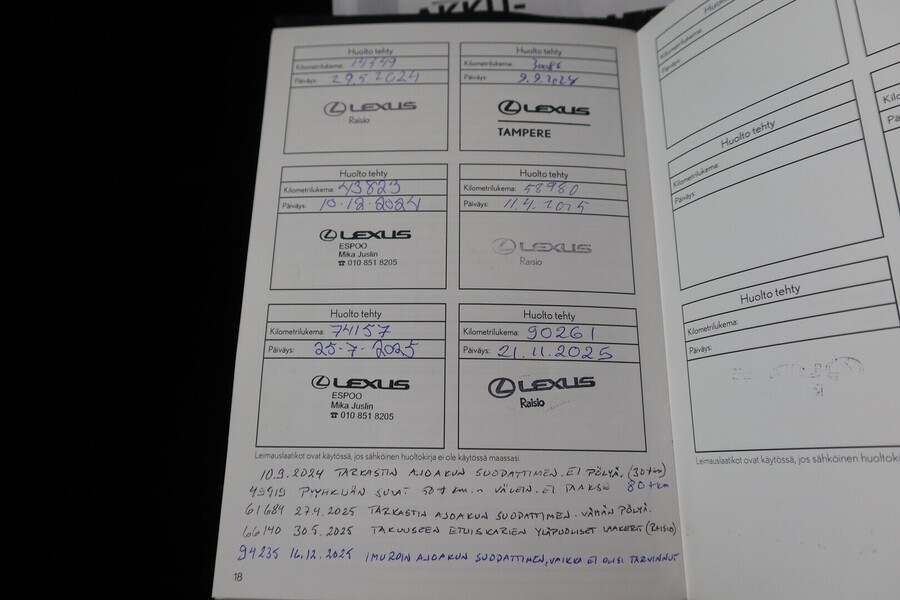 AKKU-
Huolto tehty
Kilometrilukema: 14349
Päiväys: 29.5.2024
LEXUS
Raisio
Huolto tehty
Kilometrilukema: 30086
Päiväys: 9.9.2024
LEXUS
TAMPERE
Huolto tehty
Kilometrilukema: 43823
Päiväys: 10.12.2024
LEXUS
ESPOO
Mika Juslin
☎ 010 851 8205
Huolto tehty
Kilometrilukema: 58980
Päiväys: 11.4.2025
LEXUS
Raisio
Huolto tehty
Kilometrilukema: 74157
Päiväys: 25.7.2025
LEXUS
ESPOO
Mika Juslin
☎ 010 851 8205
Huolto tehty
Kilometrilukema: 90261
Päiväys: 21.11.2025
LEXUS
Raisio
Leimauslaatikot ovat käytössä, jos sähköinen huoltokirja ei ole käytössä maassasi.
10.9.2024 TARKASTIN AJOAKUN SUODATTIMEN. EI PÖLYÄ. (30 tkm)
PYYHKIJÄN SULAT 50 t km:n VÄLEIN. EI TAAKSE 80 tkm
61684 27.4.2025 TARKASTIN AJOAKUN SUODATTIMEN. VÄHÄN PÖLYÄ.
66140 30.5.2025 TAKUUSEEN ETUISKARIEN YLÄPUOLISET LAAKERIT (RAISIO)
94235 16.12.2025 IMUROIN AJOAKUN SUODATTIMEN, VAIKKA EI OLISI TARVINNUT
18
Kilometrilukema:
Päiväys:
Huolto tehty
Kilometrilukema:
Päiväys:
Huolto tehty
Kilometrilukema:
Päiväys:
Leimauslaatikot ovat käytössä, jos sähköinen huoltoki